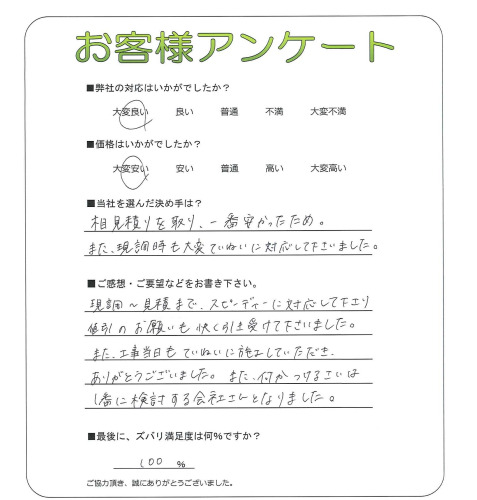 お客様アンケート
■弊社の対応はいかがでしたか？
大変良い 良い 普通 不満 大変不満
■価格はいかがでしたか？
大変安い 安い 普通 高い 大変高い
■当社を選んだ決め手は？
相見積りを取り、一番安かったため。
また、現調時も大変ていねいに対応して下さいました。
■ご感想・ご要望などをお書き下さい。
現調～見積まで、スピーディーに対応して下さり
値引のお願いも快く引き受けて下さいました。
また、工事当日もていねいに施工していただき、
ありがとうございました。また、何かつけるさいは
1番に検討する会社さんとなりました。
■最後に、ズバリ満足度は何%ですか？
100 %
ご協力頂き、誠にありがとうございました。